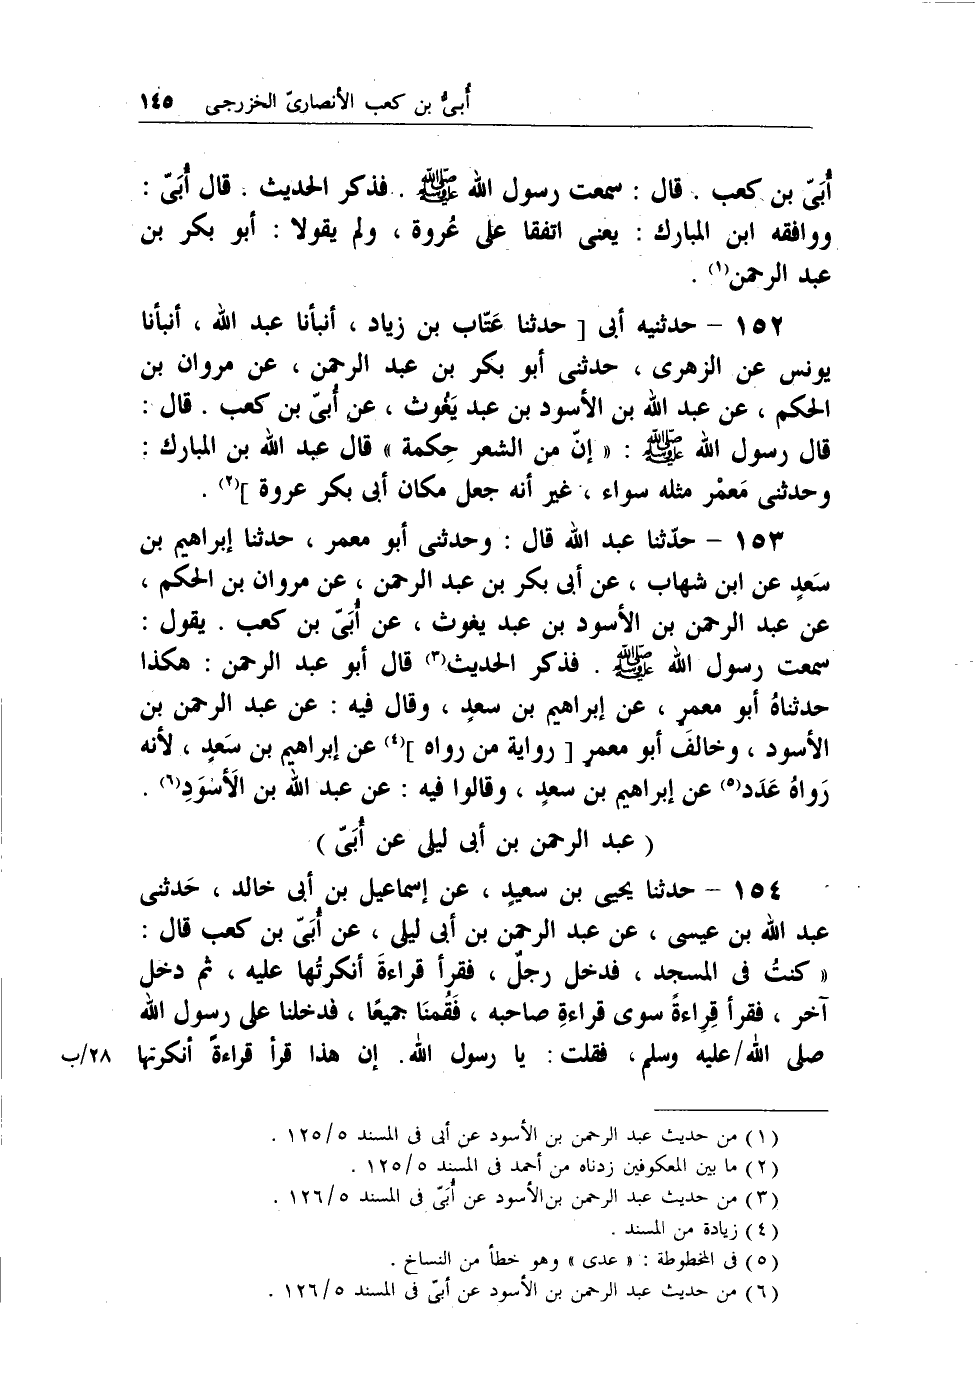 أُبىُّ بن كعب الأنصارىّ الخزرجى ١٤٥
أُبَىّ بن كعب . قال : سمعت رسول الله ﷺ . فذكر الحديث . قال أُبَىّ :
ووافقه ابن المبارك : يعنى اتفقا على عُروة ، ولم يقولا : أبو بكر بن
عبد الرحمن(١) .
١٥٢ – حدثنيه أبى [ حدثنا عَتّاب بن زياد ، أنبأنا عبد الله ، أنبأنا
يونس عن الزهرى ، حدثنى أبو بكر بن عبد الرحمن ، عن مروان بن
الحكم ، عن عبد الله بن الأسود بن عبد يَغُوث ، عن أُبىّ بن كعب . قال :
قال رسول الله ﷺ : « إنّ من الشعر حِكمة » قال عبد الله بن المبارك :
وحدثنى مَعمْر مثله سواء ، غير أنه جعل مكان أبى بكر عروة ](٢) .
١٥٣ – حدّثنا عبد الله قال : وحدثنى أبو معمر ، حدثنا إبراهيم بن
سَعدٍ عن ابن شهاب ، عن أبى بكر بن عبد الرحمن ، عن مروان بن الحكم ،
عن عبد الرحمن بن الأسود بن عبد يغوث ، عن أُبَىّ بن كعب . يقول :
سمعت رسول الله ﷺ . فذكر الحديث(٣) قال أبو عبد الرحمن : هكذا
حدثناهُ أبو معمرٍ ، عن إبراهيم بن سعدٍ ، وقال فيه : عن عبد الرحمن بن
الأسود ، وخالفَ أبو معمرٍ [ رواية من رواه ](٤) عن إبراهيم بن سَعدٍ ، لأنه
رَواهُ عَدَد(٥) عن إبراهيم بن سعدٍ ، وقالوا فيه : عن عبد الله بن الَأسْوَدِ(٦) .
( عبد الرحمن بن أبى ليلى عن أُبَىّ )
١٥٤ – حدثنا يحيى بن سعيدٍ ، عن إسماعيل بن أبى خالد ، حَدثنى
عبد الله بن عيسى ، عن عبد الرحمن بن أبى ليلى ، عن أُبَىّ بن كعب قال :
« كنتُ فى المسجد ، فدخل رجلٌ ، فقرأ قراءةَ أنكرتُها عليه ، ثم دخل
آخر ، فقرأ قِراءةً سوى قراءةِ صاحبه ، فَقُمنَا جميعًا ، فدخلنا على رسول الله
صلى الله/عليه وسلم، فقلت: يا رسول الله. إن هذا قرأ قراءةً أنكرتها ٢٨/ب
(١) من حديث عبد الرحمن بن الأسود عن أبى فى المسند ١٢٥/٥ .
(٢) ما بين المعكوفين زدناه من أحمد فى المسند ١٢٥/٥ .
(٣) من حديث عبد الرحمن بن الأسود عن أُبَىّ فى المسند ١٢٦/٥ .
(٤) زيادة من المسند .
(٥) فى المخطوطة : « عدى » وهو خطأ من النساخ .
(٦) من حديث عبد الرحمن بن الأسود عن أبىّ فى المسند ١٢٦/٥ .